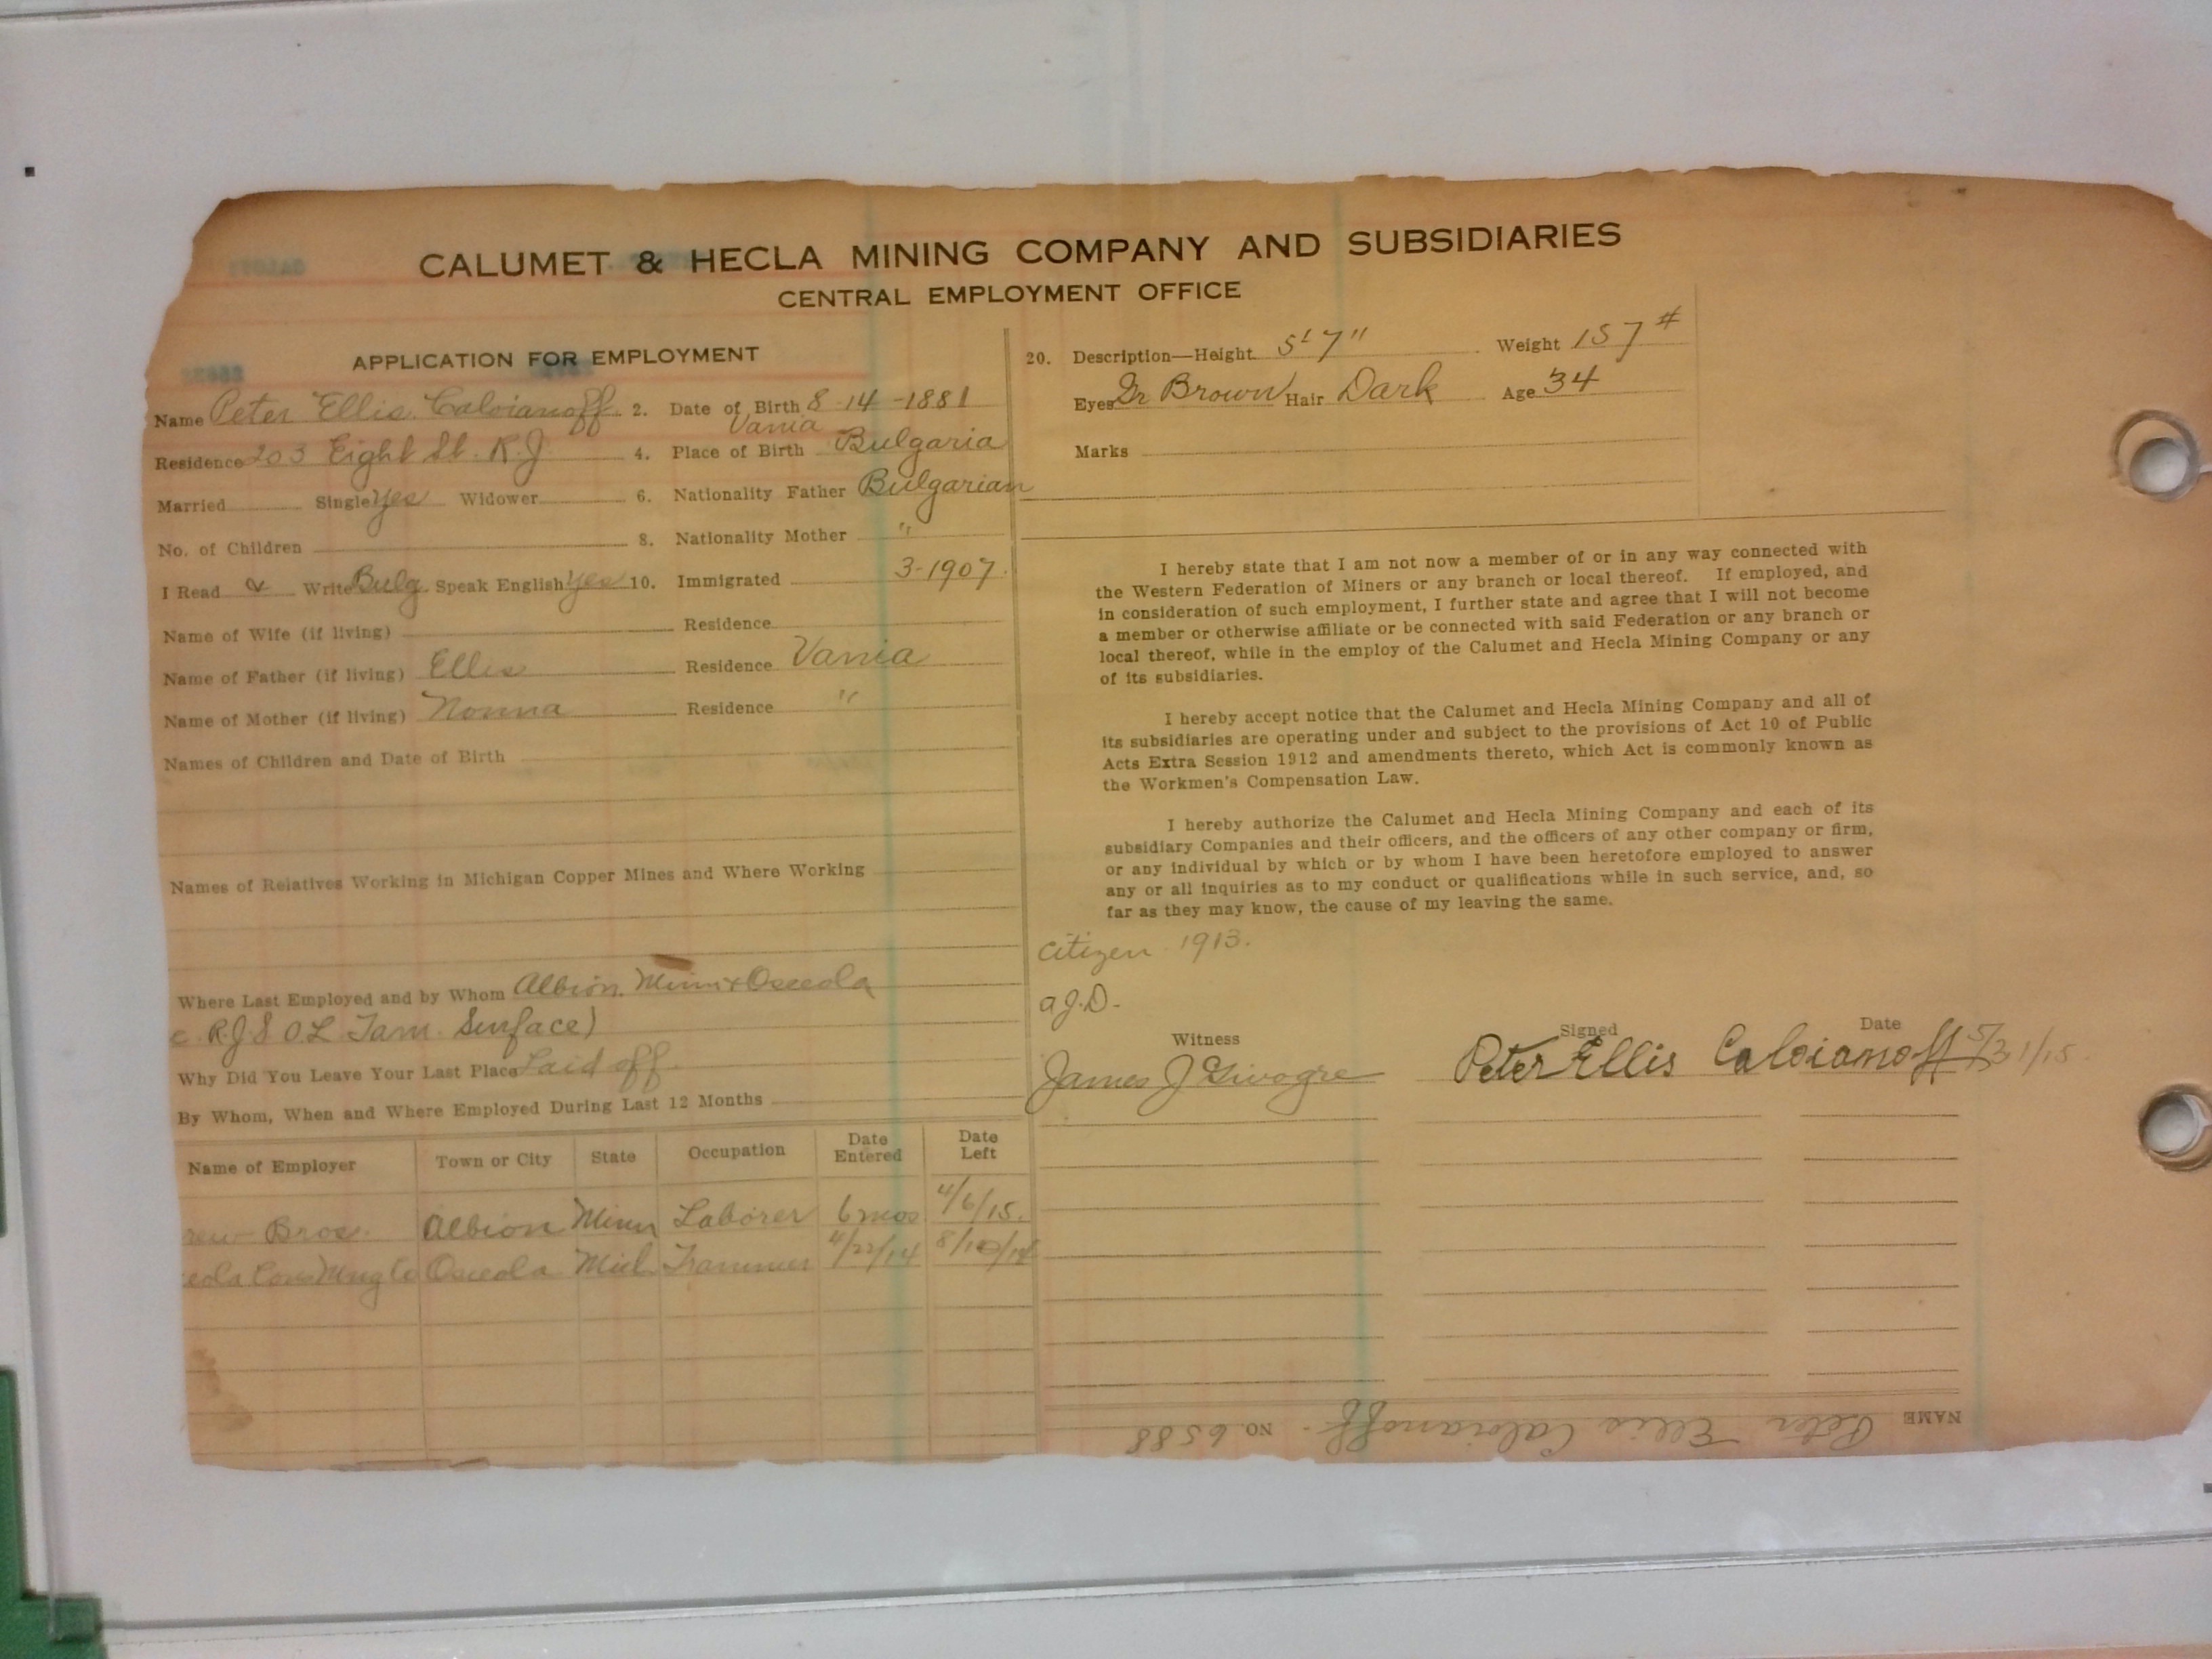 CALUMET & HECLA MINING COMPANY AND SUBSIDIARIES
CENTRAL EMPLOYMENT OFFICE
APPLICATION FOR EMPLOYMENT
Name Peter Ellis Caloianoff 2. Date of Birth 8-14-1881
Vania
Residence 203 Eight St. R.J. 4. Place of Birth Bulgaria
Married Single Yes Widower 6. Nationality Father Bulgarian
No. of Children 8. Nationality Mother "
I Read & Write Bulg. Speak English Yes 10. Immigrated 3-1907.
Name of Wife (if living) Residence
Name of Father (if living) Ellis Residence Vania
Name of Mother (if living) Nonna Residence "
Names of Children and Date of Birth
Names of Relatives Working in Michigan Copper Mines and Where Working
Where Last Employed and by Whom Albion, Minn + Osceola
R.J. & O.L. Tam. Surface)
Why Did You Leave Your Last Place Laid off
By Whom, When and Where Employed During Last 12 Months
Name of Employer Town or City State Occupation Date Entered Date Left
Bros. Albion Minn Laborer 6 mos 4/6/15.
eola Cons Mng Co Osceola Mich Trammer 4/22/14 8/10/14
20. Description—Height 5' 7" Weight 157 #
Eyes Gr Brown Hair Dark Age 34
Marks
I hereby state that I am not now a member of or in any way connected with
the Western Federation of Miners or any branch or local thereof. If employed, and
in consideration of such employment, I further state and agree that I will not become
a member or otherwise affiliate or be connected with said Federation or any branch or
local thereof, while in the employ of the Calumet and Hecla Mining Company or any
of its subsidiaries.
I hereby accept notice that the Calumet and Hecla Mining Company and all of
its subsidiaries are operating under and subject to the provisions of Act 10 of Public
Acts Extra Session 1912 and amendments thereto, which Act is commonly known as
the Workmen's Compensation Law.
I hereby authorize the Calumet and Hecla Mining Company and each of its
subsidiary Companies and their officers, and the officers of any other company or firm,
or any individual by which or by whom I have been heretofore employed to answer
any or all inquiries as to my conduct or qualifications while in such service, and, so
far as they may know, the cause of my leaving the same.
Citizen 1913.
a.J.D.
Witness Signed Date
James J Peter Ellis Caloianoff 5/31/15.
NAME Peter Ellis Caloianoff. NO. 6588